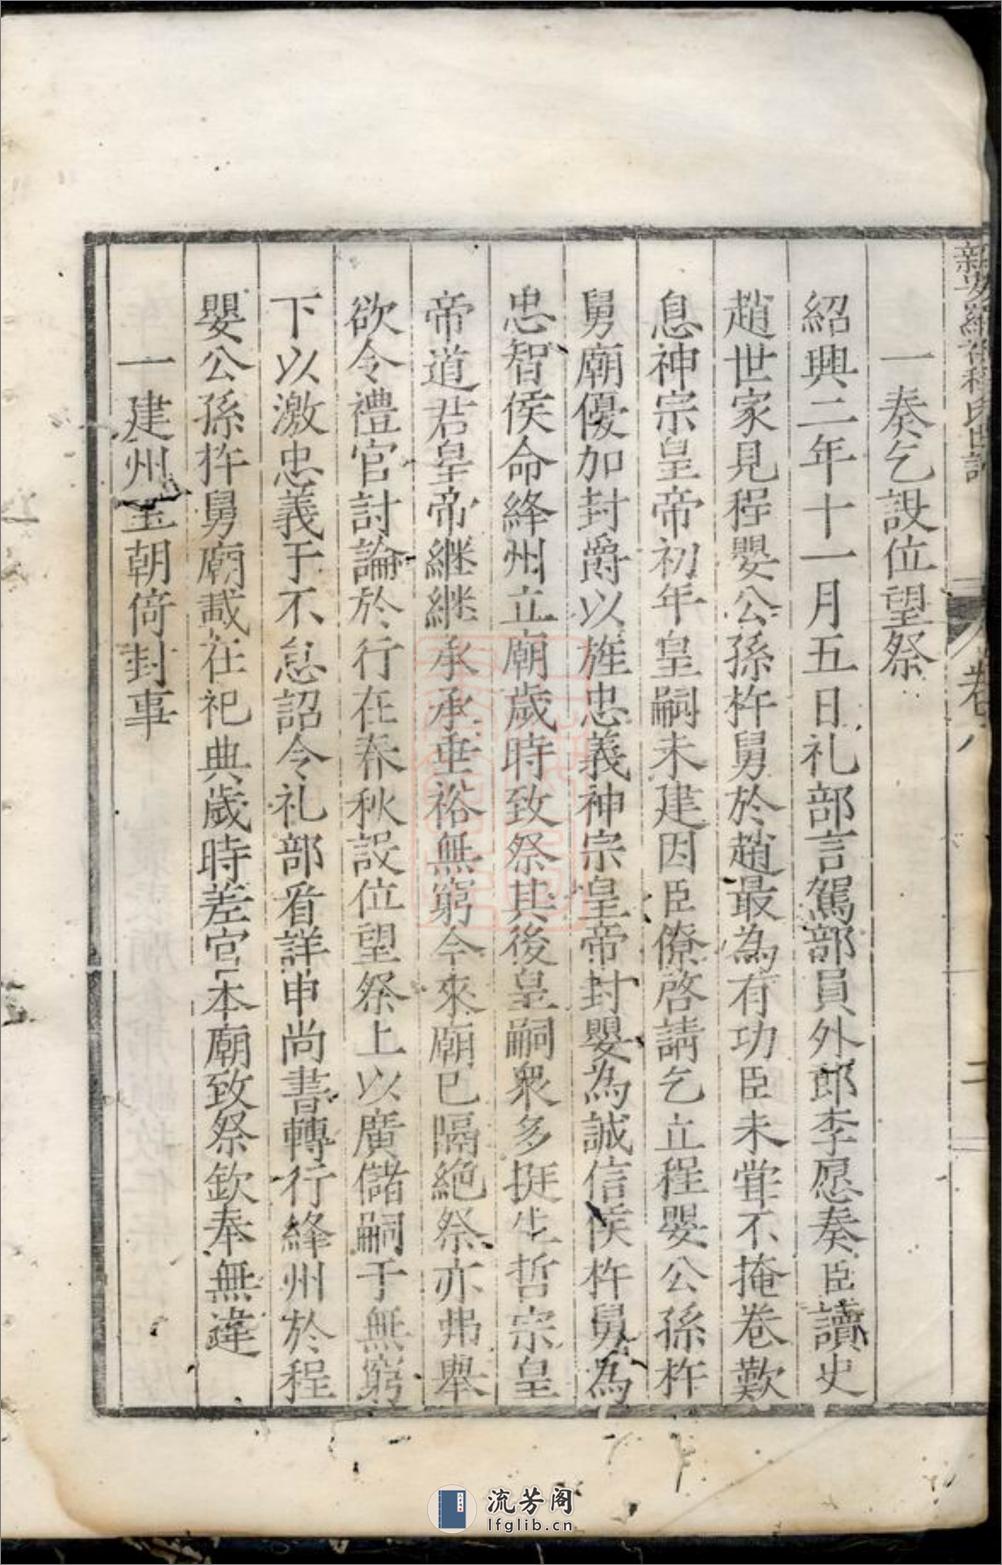 一奏乞設位望祭
紹興二年十一月五日礼部言駕部員外郎李愿奏臣讀史
趙世家見程嬰公孫杵舅於趙最為有功臣未甞不掩卷歎
息神宗皇帝初年皇嗣未建因臣僚啓請乞立程嬰公孫杵
舅廟優加封爵以旌忠義神宗皇帝封嬰為誠信侯杵舅為
忠智侯命絳州立廟歲時致祭其後皇嗣衆多挺生哲宗皇
帝道君皇帝繼繼承承垂裕無窮今來廟已隔絶祭亦弗舉
欲令禮官討論於行在春秋設位望祭上以廣儲嗣于無窮
下以激忠義于不怠詔令礼部看詳申尚書轉行絳州於程
嬰公孫杵舅廟載在祀典歲時差官本廟致祭欽奉無違
一建州 朝倚封事
卷八
二
流芳阁
lfglib.cn